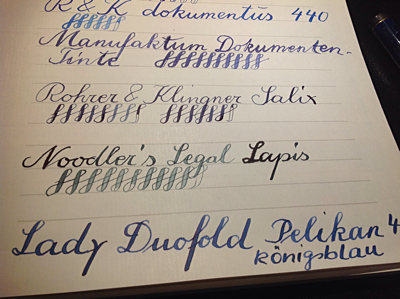 R & K dokumentus 440
Manufaktum Dokumenten-
Tinte
Rohrer & Klingner Salix
Noodler's Legal Lapis
Lady Duofold Pelikan 4
königsblau